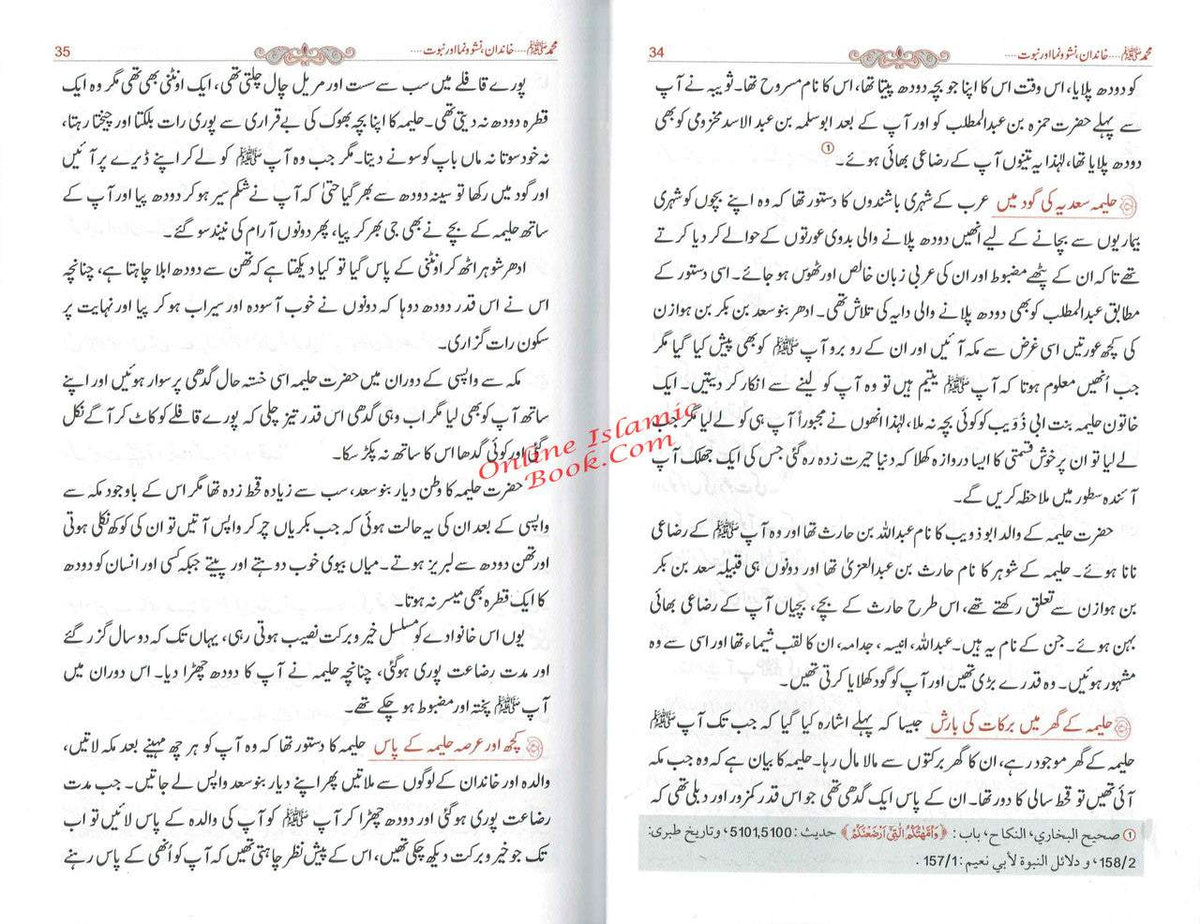 محمد ﷺ .... خاندان، نشوونما اور نبوت .... 34
کو دودھ پلایا، اس وقت اس کا اپنا جو بچہ دودھ پیتا تھا، اس کا نام مسروح تھا۔ ثویبہ نے آپ
سے پہلے حضرت حمزہ بن عبدالمطلب کو اور آپ کے بعد ابوسلمہ بن عبدالاسد مخزومی کو بھی
دودھ پلایا تھا، لہٰذا یہ تینوں آپ کے رضاعی بھائی ہوئے۔ ①
حلیمہ سعدیہ کی گود میں عرب کے شہری باشندوں کا دستور تھا کہ وہ اپنے بچوں کو شہری
بیماریوں سے بچانے کے لیے انھیں دودھ پلانے والی بدوی عورتوں کے حوالے کر دیا کرتے
تھے تاکہ ان کے پٹھے مضبوط اور ان کی عربی زبان خالص اور ٹھوس ہو جائے۔ اسی دستور کے
مطابق عبدالمطلب کو بھی دودھ پلانے والی دایہ کی تلاش تھی۔ ادھر بنو سعد بن بکر بن ہوازن
کی کچھ عورتیں اسی غرض سے مکہ آئیں اور ان کے روبرو آپ ﷺ کو بھی پیش کیا گیا مگر
جب اُنھیں معلوم ہوتا کہ آپ ﷺ یتیم ہیں تو وہ آپ کو لینے سے انکار کر دیتیں۔ ایک
خاتون حلیمہ بنت ابی ذُؤَیب کو کوئی بچہ نہ ملا، لہٰذا انھوں نے مجبوراً آپ ہی کو لے لیا مگر جب
لے لیا تو ان پر خوش قسمتی کا ایسا دروازہ کھلا کہ دنیا حیرت زدہ رہ گئی جس کی ایک جھلک آپ
آئندہ سطور میں ملاحظہ کریں گے۔
حضرت حلیمہ کے والد ابو ذویب کا نام عبداللہ بن حارث تھا اور وہ آپ ﷺ کے رضاعی
نانا ہوئے۔ حلیمہ کے شوہر کا نام حارث بن عبدالعزیٰ تھا اور دونوں ہی قبیلہ سعد بن بکر
بن ہوازن سے تعلق رکھتے تھے، اس طرح حارث کے بچے، بچیاں آپ کے رضاعی بھائی
بہن ہوئے۔ جن کے نام یہ ہیں۔ عبداللہ، انیسہ، جدامہ، ان کا لقب شیماء تھا اور اسی سے وہ
مشہور ہوئیں۔ وہ قدرے بڑی تھیں اور آپ کو گود کھلایا کرتی تھیں۔
حلیمہ کے گھر میں برکات کی بارش جیسا کہ پہلے اشارہ کیا گیا کہ جب تک آپ ﷺ
حلیمہ کے گھر موجود رہے، ان کا گھر برکتوں سے مالا مال رہا۔ حلیمہ کا بیان ہے کہ وہ جب مکہ
آئی تھیں تو قحط سالی کا دور تھا۔ ان کے پاس ایک گدھی تھی جو اس قدر کمزور اور دبلی تھی کہ
① صحیح البخاري، النکاح، باب: ﴿وَاُمَّهٰتُكُمُ الّٰتِيْٓ اَرْضَعْنَكُمْ﴾ حدیث: 5101,5100، وتاریخ طبری:
158/2، و دلائل النبوة لأبي نعیم: 157/1.
محمد ﷺ .... خاندان، نشوونما اور نبوت .... 35
پورے قافلے میں سب سے سست اور مریل چال چلتی تھی، ایک اونٹنی بھی تھی مگر وہ ایک
قطرہ دودھ نہ دیتی تھی۔ حلیمہ کا اپنا بچہ بھوک کی بے قراری سے پوری رات بلکتا اور چیختا رہتا،
نہ خود سوتا نہ ماں باپ کو سونے دیتا۔ مگر جب وہ آپ ﷺ کو لے کر اپنے ڈیرے پر آئیں
اور گود میں رکھا تو سینہ دودھ سے بھر گیا حتیٰ کہ آپ نے شکم سیر ہو کر دودھ پیا اور آپ کے
ساتھ حلیمہ کے بچے نے بھی جی بھر کر پیا، پھر دونوں آرام کی نیند سو گئے۔
ادھر شوہر اٹھ کر اونٹنی کے پاس گیا تو کیا دیکھتا ہے کہ تھن سے دودھ ابلا چاہتا ہے، چنانچہ
اس نے اس قدر دودھ دوہا کہ دونوں نے خوب آسودہ اور سیراب ہو کر پیا اور نہایت پر
سکون رات گزاری۔
مکہ سے واپسی کے دوران میں حضرت حلیمہ اسی خستہ حال گدھی پر سوار ہوئیں اور اپنے
ساتھ آپ کو بھی لیا مگر اب وہی گدھی اس قدر تیز چلی کہ پورے قافلے کو کاٹ کر آگے نکل
گئی اور کوئی گدھا اس کا ساتھ نہ پکڑ سکا۔
حضرت حلیمہ کا وطن دیار بنو سعد، سب سے زیادہ قحط زدہ تھا مگر اس کے باوجود مکہ سے
واپسی کے بعد ان کی یہ حالت ہوئی کہ جب بکریاں چر کر واپس آتیں تو ان کی کوکھ نکلی ہوتی
اور تھن دودھ سے لبریز ہوتے۔ میاں بیوی خوب دوہتے اور پیتے جبکہ کسی اور انسان کو دودھ
کا ایک قطرہ بھی میسر نہ ہوتا۔
یوں اس خانوادے کو مسلسل خیر و برکت نصیب ہوتی رہی، یہاں تک کہ دو سال گزر گئے
اور مدت رضاعت پوری ہو گئی، چنانچہ حلیمہ نے آپ کا دودھ چھڑا دیا۔ اس دوران میں
آپ ﷺ پختہ اور مضبوط ہو چکے تھے۔
کچھ اور عرصہ حلیمہ کے پاس حلیمہ کا دستور تھا کہ وہ آپ کو ہر چھ مہینے بعد مکہ لاتیں،
والدہ اور خاندان کے لوگوں سے ملاتیں پھر اپنے دیار بنو سعد واپس لے جاتیں۔ جب مدت
رضاعت پوری ہو گئی اور دودھ چھڑا کر آپ ﷺ کو آپ کی والدہ کے پاس لائیں تو اب
تک جو خیر و برکت دیکھ چکی تھیں، اس کے پیش نظر چاہتی تھیں کہ آپ کو اُنھی کے پاس رہنے
Online Islamic
Book.Com